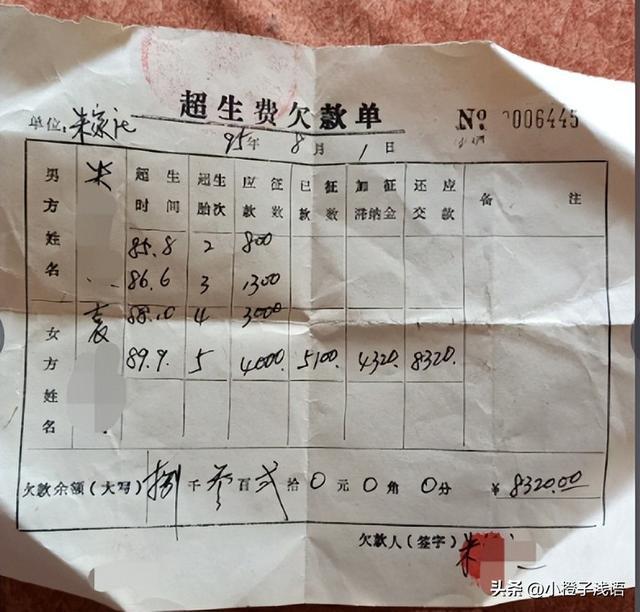 超生费欠款单
№ 0006445
单位:朱家沱
95年8月1日
男方姓名 朱
超生时间 超生胎次 应征款数 已征款数 加征滞纳金 还应交款 备注
85.8 2 800
86.6 3 1300
88.10 4 3000
女方姓名 袁
89.9. 5 4000. 5100. 4320. 8320.
欠款余额(大写) 捌千叁百贰拾0元0角0分 ¥8320.00
欠款人(签字) 朱
头条 @小橙子浅语